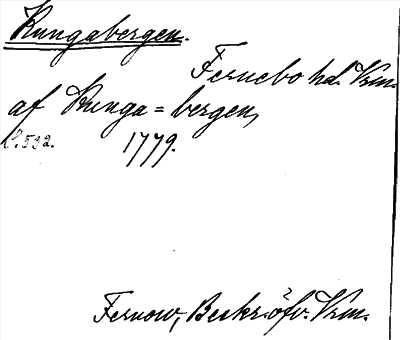 Kungabergen.
Fernebo hd. Vrm.
af Kunga = bergen,
S. 532. 1779.
Fernow, Beskr. öfv. Vrm.